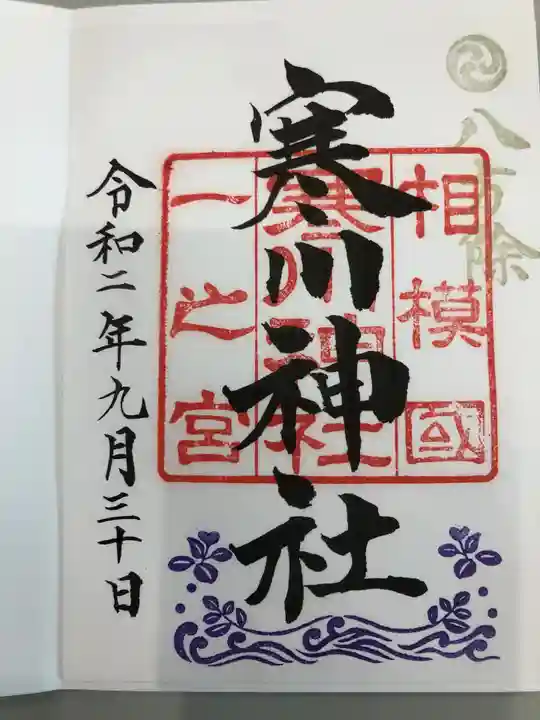 八方除
寒川神社
相模國
寒川神社
一之宮
令和二年九月三十日